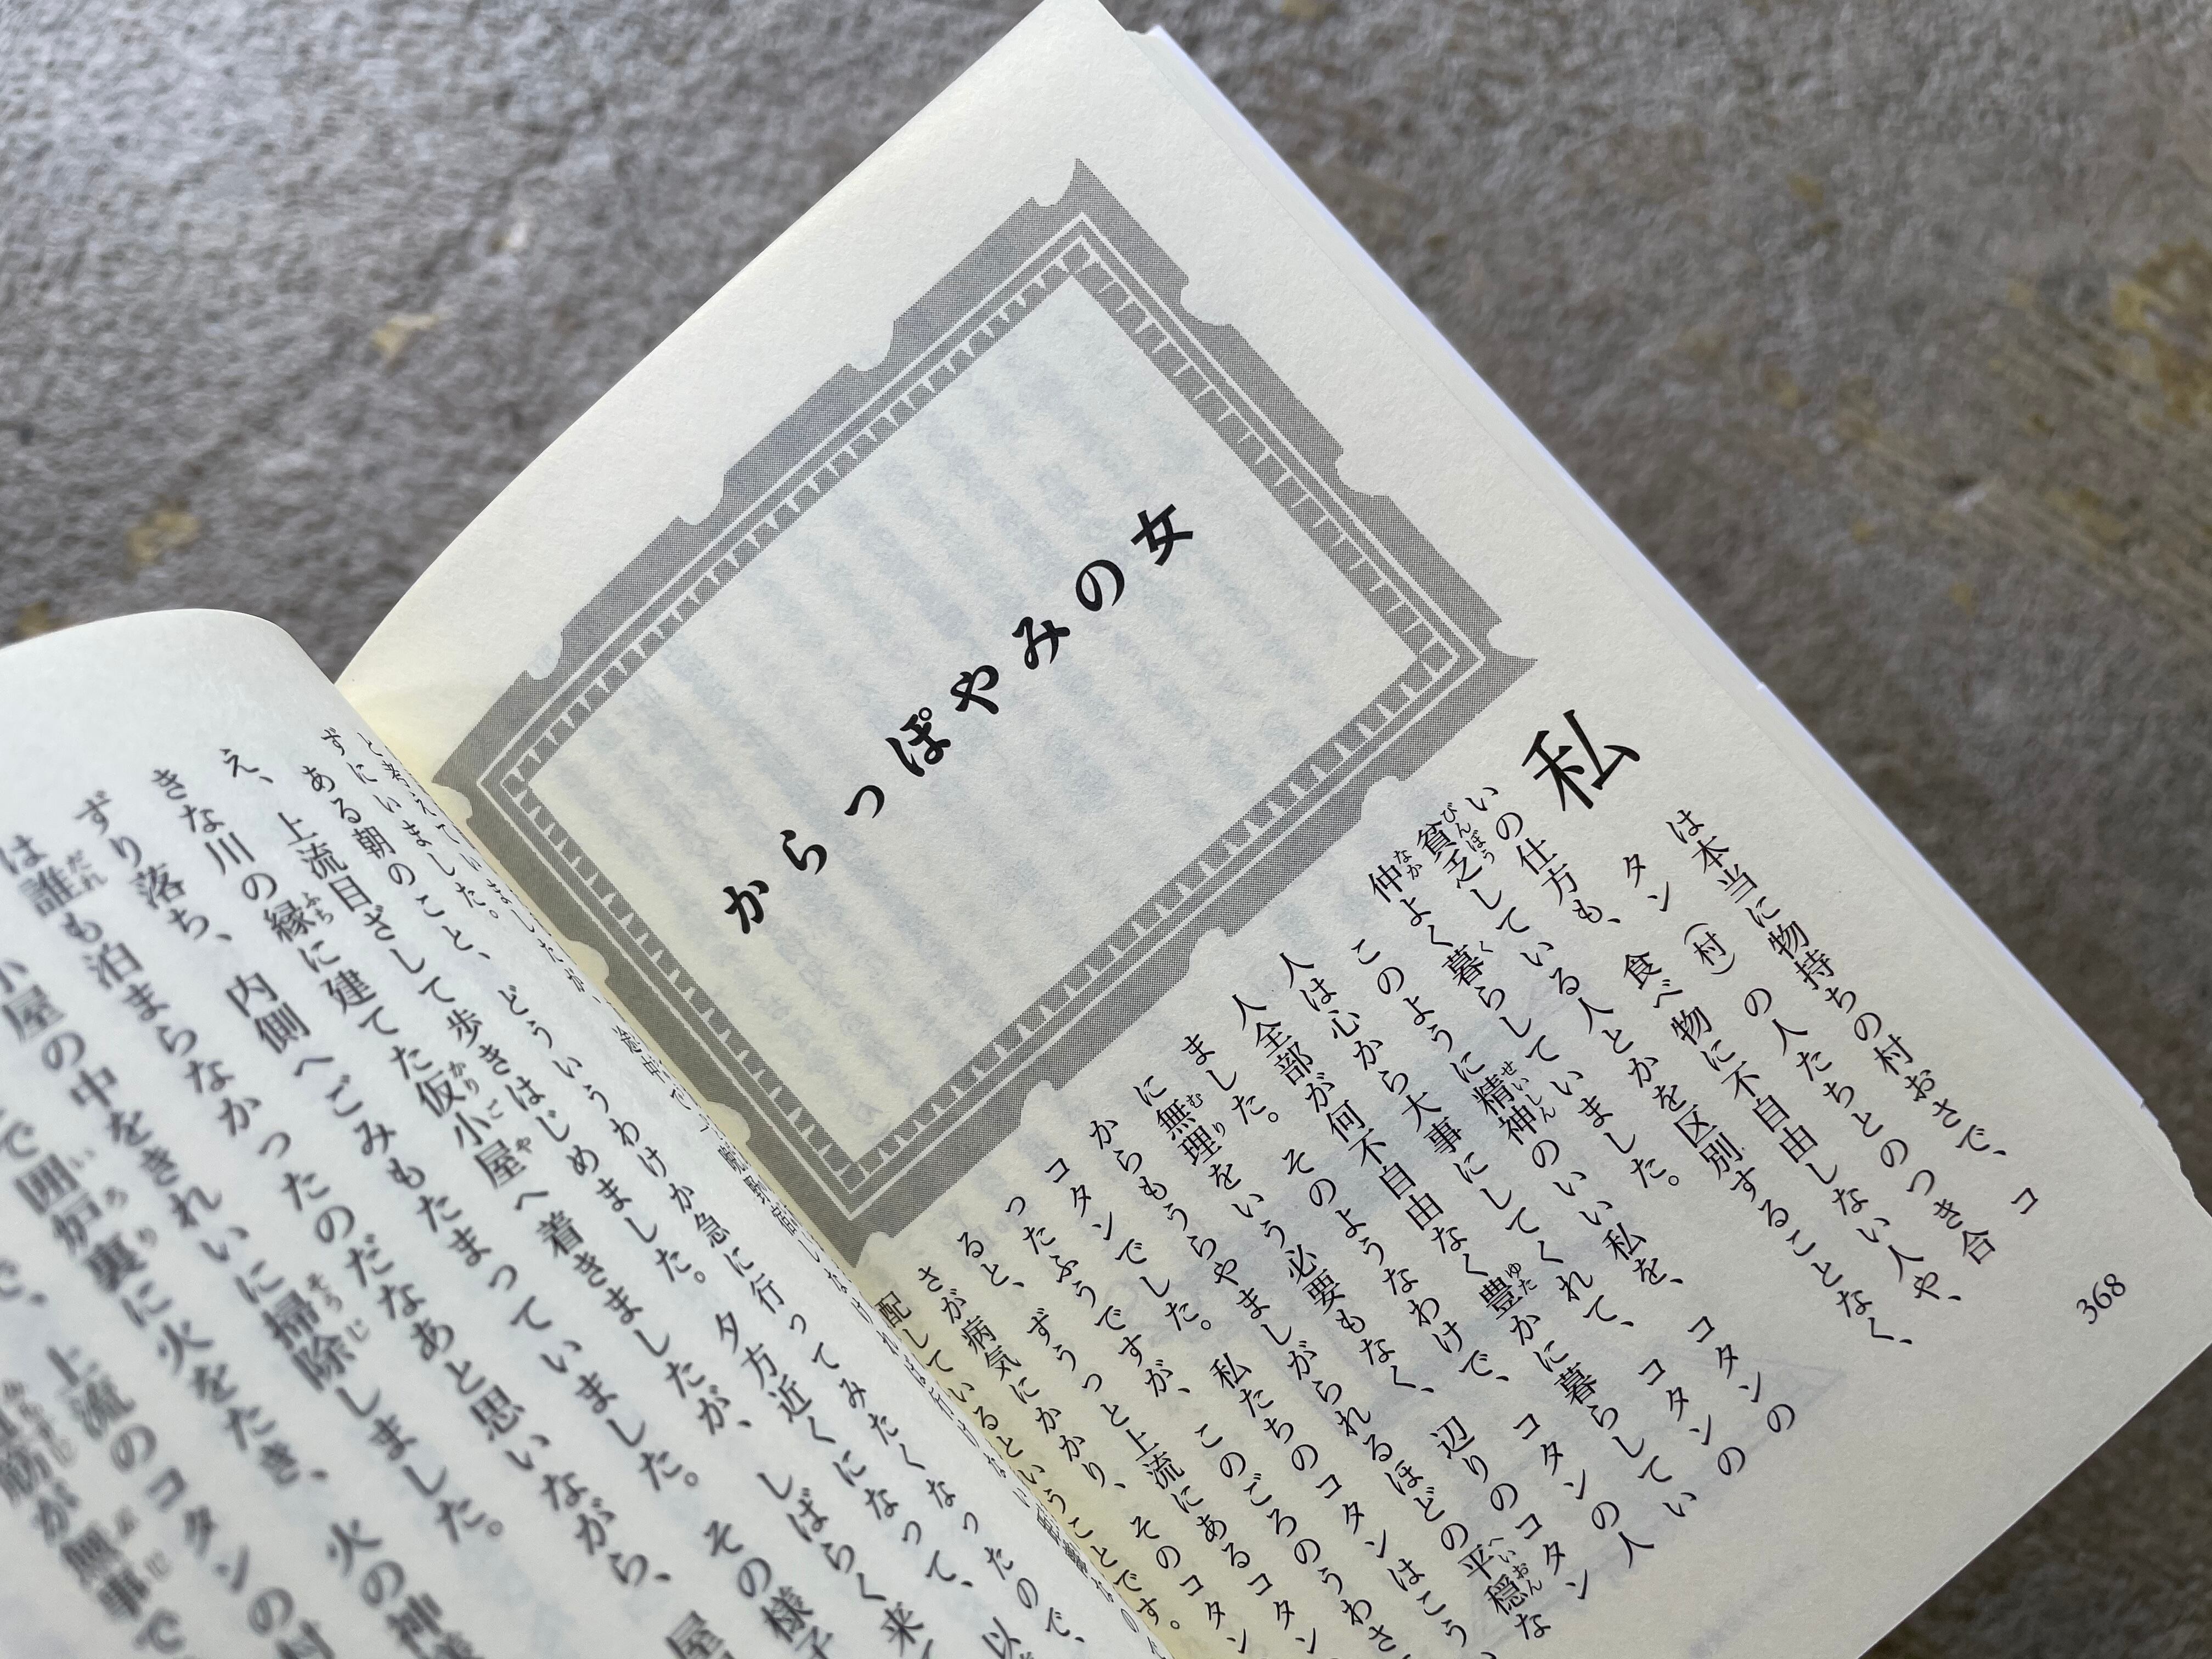 368
からっぽやみの女
私は本当に物持ちの村おさで、コ
タン(村)の人たちとのつき合
いの仕方も、食べ物に不自由しない人や、
貧乏している人とかを区別することなく、
仲よく暮らしていました。
このように精神のいい私を、コタンの
人は心から大事にしてくれて、コタンの
人全部が何不自由なく豊かに暮らしてい
ました。そのようなわけで、コタンの人
に無理をいう必要もなく、辺りのコタン
からもうらやましがられるほどの平穏な
コタンでした。私たちのコタンはこうい
ったふうですが、このごろのうわさ
ると、ずうっと上流にあるコタン
さが病気にかかり、そのコタン
配しているということです。
と考えていましたが、途中で
ずにいました。
ある朝のこと、どういうわけか急に行ってみたくなったので、
え、上流目ざして歩きはじめました。夕方近くになって、以
きな川の縁に建てた仮小屋へ着きましたが、しばらく来
ずり落ち、内側へごみもたまっていました。その様子
は誰も泊まらなかったのだなあと思いながら、屋
小屋の中をきれいに掃除しました。
で囲炉裏に火をたき、火の神様
で、上流のコタンの村
筋が無事で